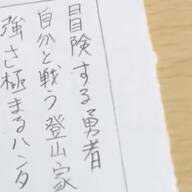 冒険する勇者
自分と戦う登山家
強さ極まるハンタ